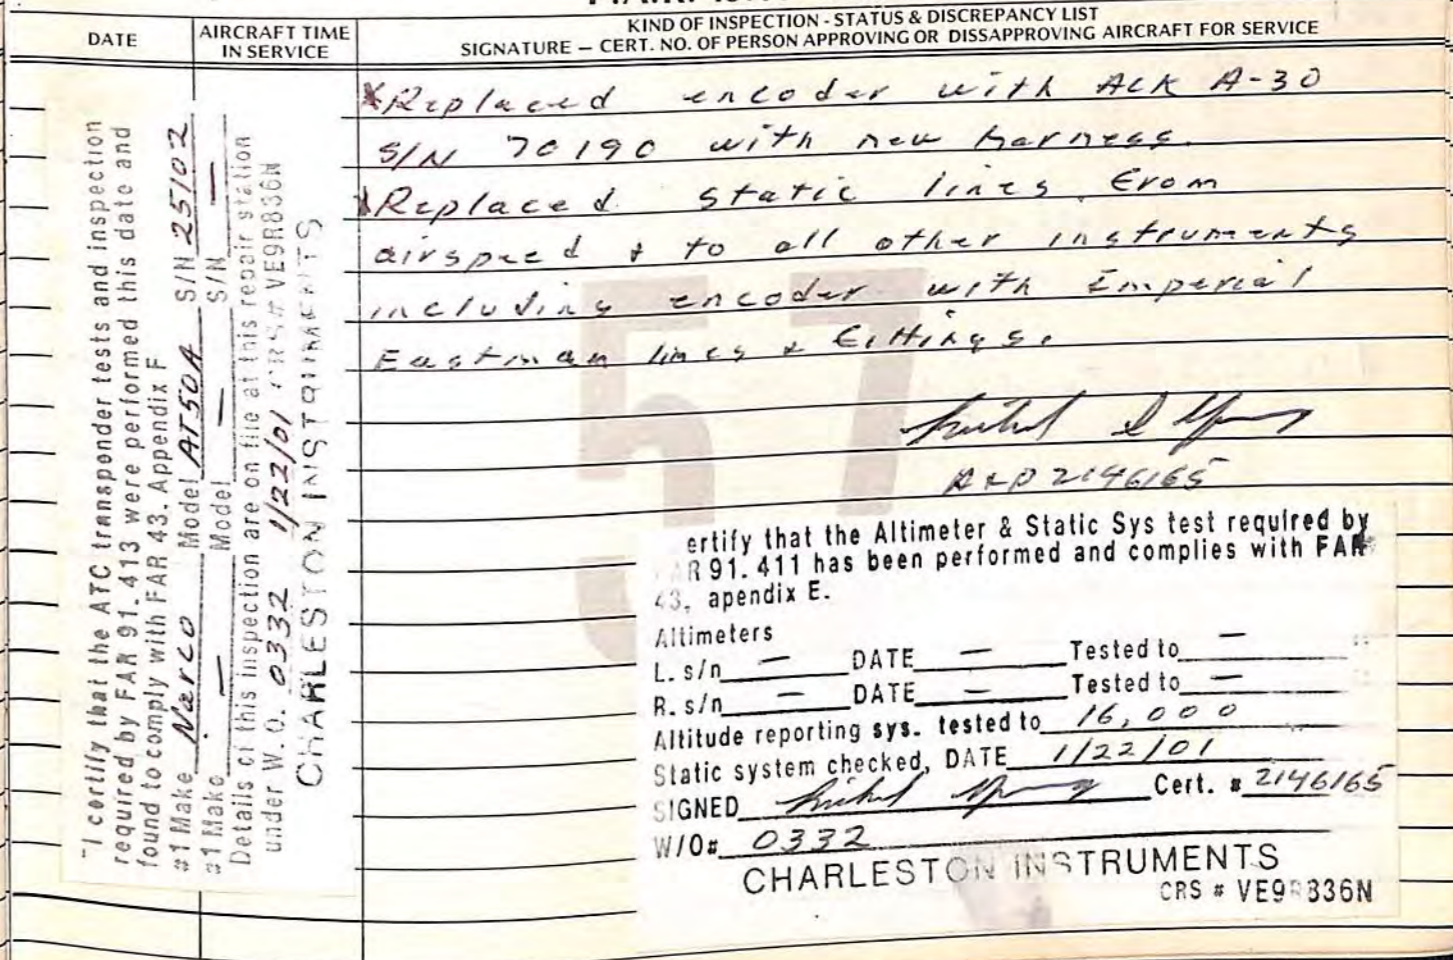 DATE
AIRCRAFT TIME
IN SERVICE
KIND OF INSPECTION - STATUS & DISCREPANCY LIST
SIGNATURE — CERT. NO. OF PERSON APPROVING OR DISSAPPROVING AIRCRAFT FOR SERVICE
"I certify that the ATC transponder tests and inspection
required by FAR 91.413 were performed this date and
found to comply with FAR 43, Appendix F
#1 Make Narco Model AT50A S/N 25102
#1 Make — Model — S/N —
Details of this inspection are on file at this repair station
under W.O. 0332 1/22/01 CRS# VE9R836N
CHARLESTON INSTRUMENTS
*Replaced encoder with ACK A-30
S/N 70190 with new harness.
*Replaced static lines from
airspeed & to all other instruments
including encoder with Imperial
Eastman lines & fittings.
A&P 2146165
ertify that the Altimeter & Static Sys test required by
FAR 91.411 has been performed and complies with FAR
43, apendix E.
Altimeters
L. s/n — DATE — Tested to —
R. s/n — DATE — Tested to —
Altitude reporting sys. tested to 16,000
Static system checked, DATE 1/22/01
SIGNED Cert. # 2146165
W/O# 0332
CHARLESTON INSTRUMENTS
CRS # VE9R836N
57